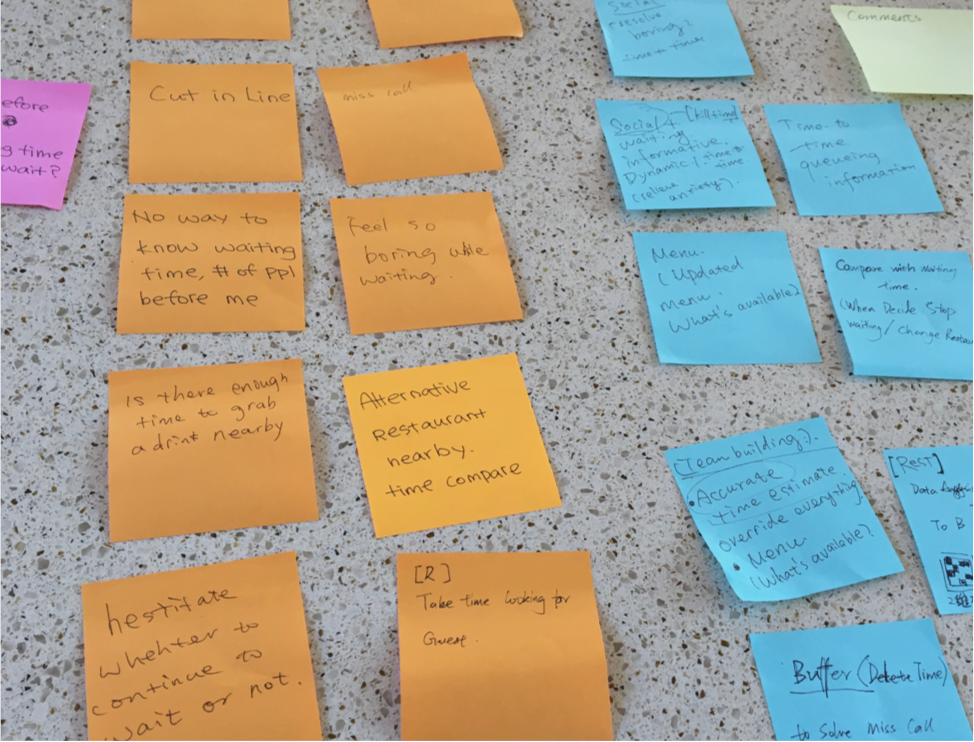 efore
g time
wait?
Cut in Line
miss call
No way to
know waiting
time, # of ppl
before me
Feel so
boring while
waiting.
Is there enough
time to grab
a drink nearby
Alternative
Restaurant
nearby.
time compare
hestitate
whehter to
continue to
wait or not.
[R]
Take time looking for
Guest.
Social
resolve
boring?
time
Comments
Social + [kill time]
waiting
informative.
Dynamic / time to
time.
(relieve anxiety).
Time to
time
queueing
information
Menu.
(Updated
menu.
What's available?
Compare with waiting
time.
(When Decide Stop
waiting/ Change Restau
(Team building:).
• Accurate
time estimate
override everything.
• Menu.
(What's available?
[Rest]
Data
To B
Buffer (Delete Time)
to Solve Miss Call